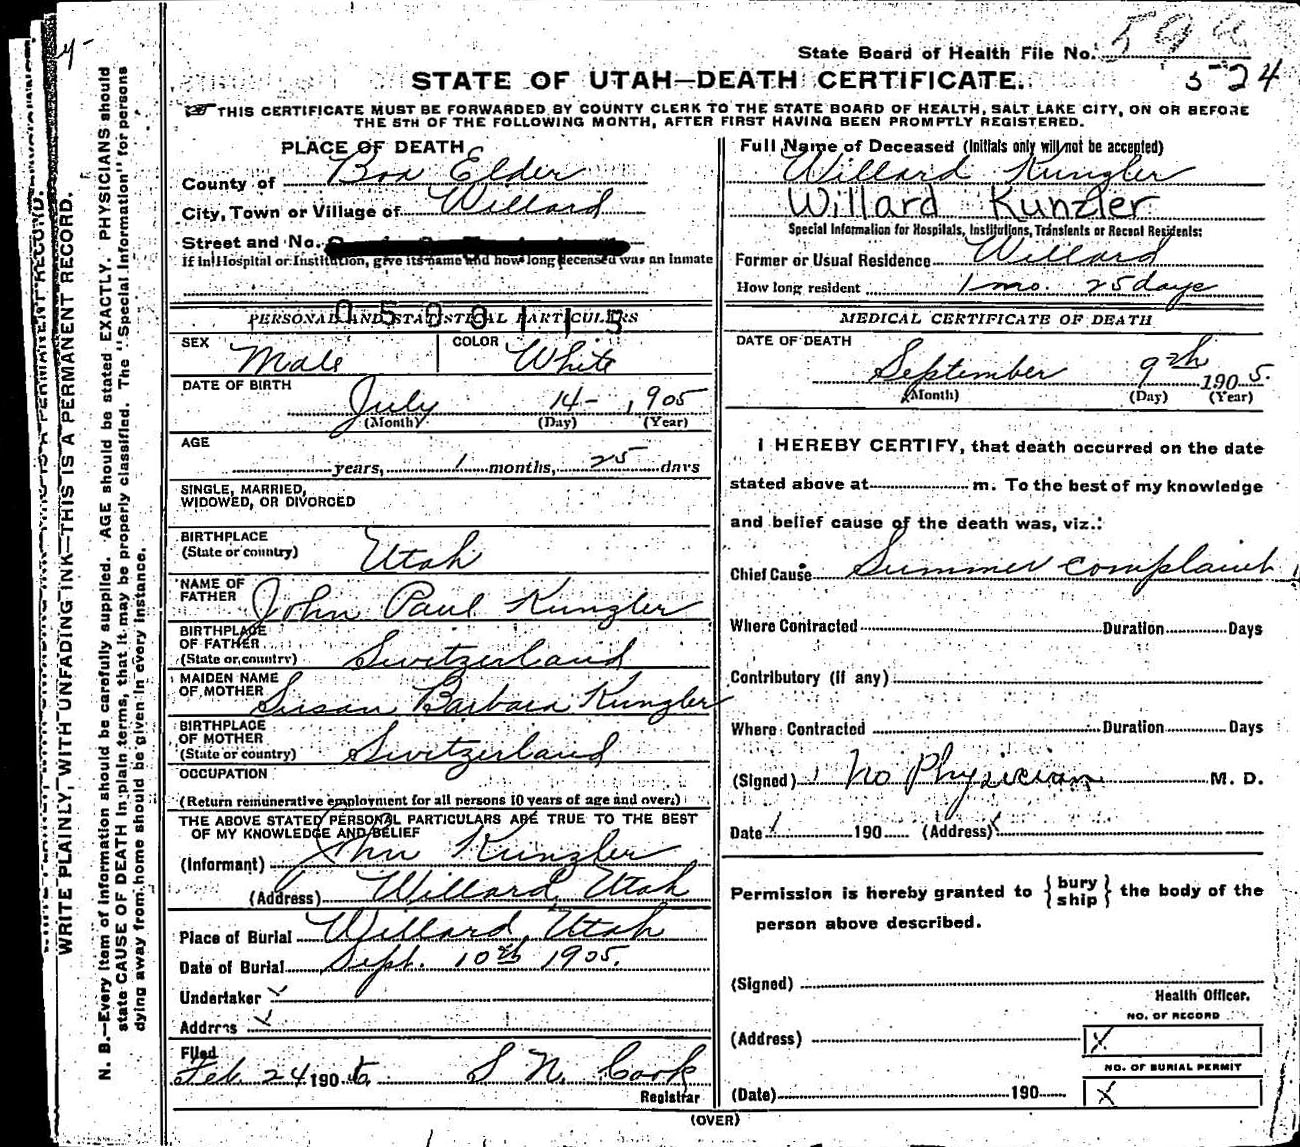 State Board of Health File No.
524
STATE OF UTAH—DEATH CERTIFICATE.
THIS CERTIFICATE MUST BE FORWARDED BY COUNTY CLERK TO THE STATE BOARD OF HEALTH, SALT LAKE CITY, ON OR BEFORE
THE 5TH OF THE FOLLOWING MONTH, AFTER FIRST HAVING BEEN PROMPTLY REGISTERED.
WRITE PLAINLY, WITH UNFADING INK—THIS IS A PERMANENT RECORD.
N. B.—Every item of information should be carefully supplied. AGE should be stated EXACTLY. PHYSICIANS should
state CAUSE OF DEATH in plain terms, that it may be properly classified. The "Special Information" for persons
dying away from home should be given in every instance.
PLACE OF DEATH
County of Box Elder
City, Town or Village of Willard
Street and No.
If in Hospital or Institution, give its name and how long deceased was an inmate
0500115
PERSONAL AND STATISTICAL PARTICULARS
SEX Male COLOR White
DATE OF BIRTH
July 14- 1905
(Month) (Day) (Year)
AGE
years, 1 months, 25 days
SINGLE, MARRIED,
WIDOWED, OR DIVORCED
BIRTHPLACE
(State or country) Utah
NAME OF
FATHER John Paul Kunzler
BIRTHPLACE
OF FATHER
(State or country) Switzerland
MAIDEN NAME
OF MOTHER Susan Barbara Kunzler
BIRTHPLACE
OF MOTHER
(State or country) Switzerland
OCCUPATION
(Return remunerative employment for all persons 10 years of age and over.)
THE ABOVE STATED PERSONAL PARTICULARS ARE TRUE TO THE BEST
OF MY KNOWLEDGE AND BELIEF
(Informant) John Kunzler
(Address) Willard, Utah
Place of Burial Willard, Utah
Date of Burial Sept. 10th 1905.
Undertaker
Address
Filed
Feb. 24 190 S N. Cook
Registrar
Full Name of Deceased (Initials only will not be accepted)
Willard Kunzler
Willard Kunzler
Special Information for Hospitals, Institutions, Transients or Recent Residents:
Former or Usual Residence Willard
How long resident 1 mo. 25 days
MEDICAL CERTIFICATE OF DEATH
DATE OF DEATH
September 9th 1905.
(Month) (Day) (Year)
I HEREBY CERTIFY, that death occurred on the date
stated above at m. To the best of my knowledge
and belief cause of the death was, viz.:
Chief Cause Summer complaint
Where Contracted Duration Days
Contributory (if any)
Where Contracted Duration Days
(Signed) No Physician M. D.
Date 190 (Address)
Permission is hereby granted to { bury ship } the body of the
person above described.
(Signed)
Health Officer.
NO. OF RECORD
(Address) X
NO. OF BURIAL PERMIT
(Date) 190 X
(OVER)